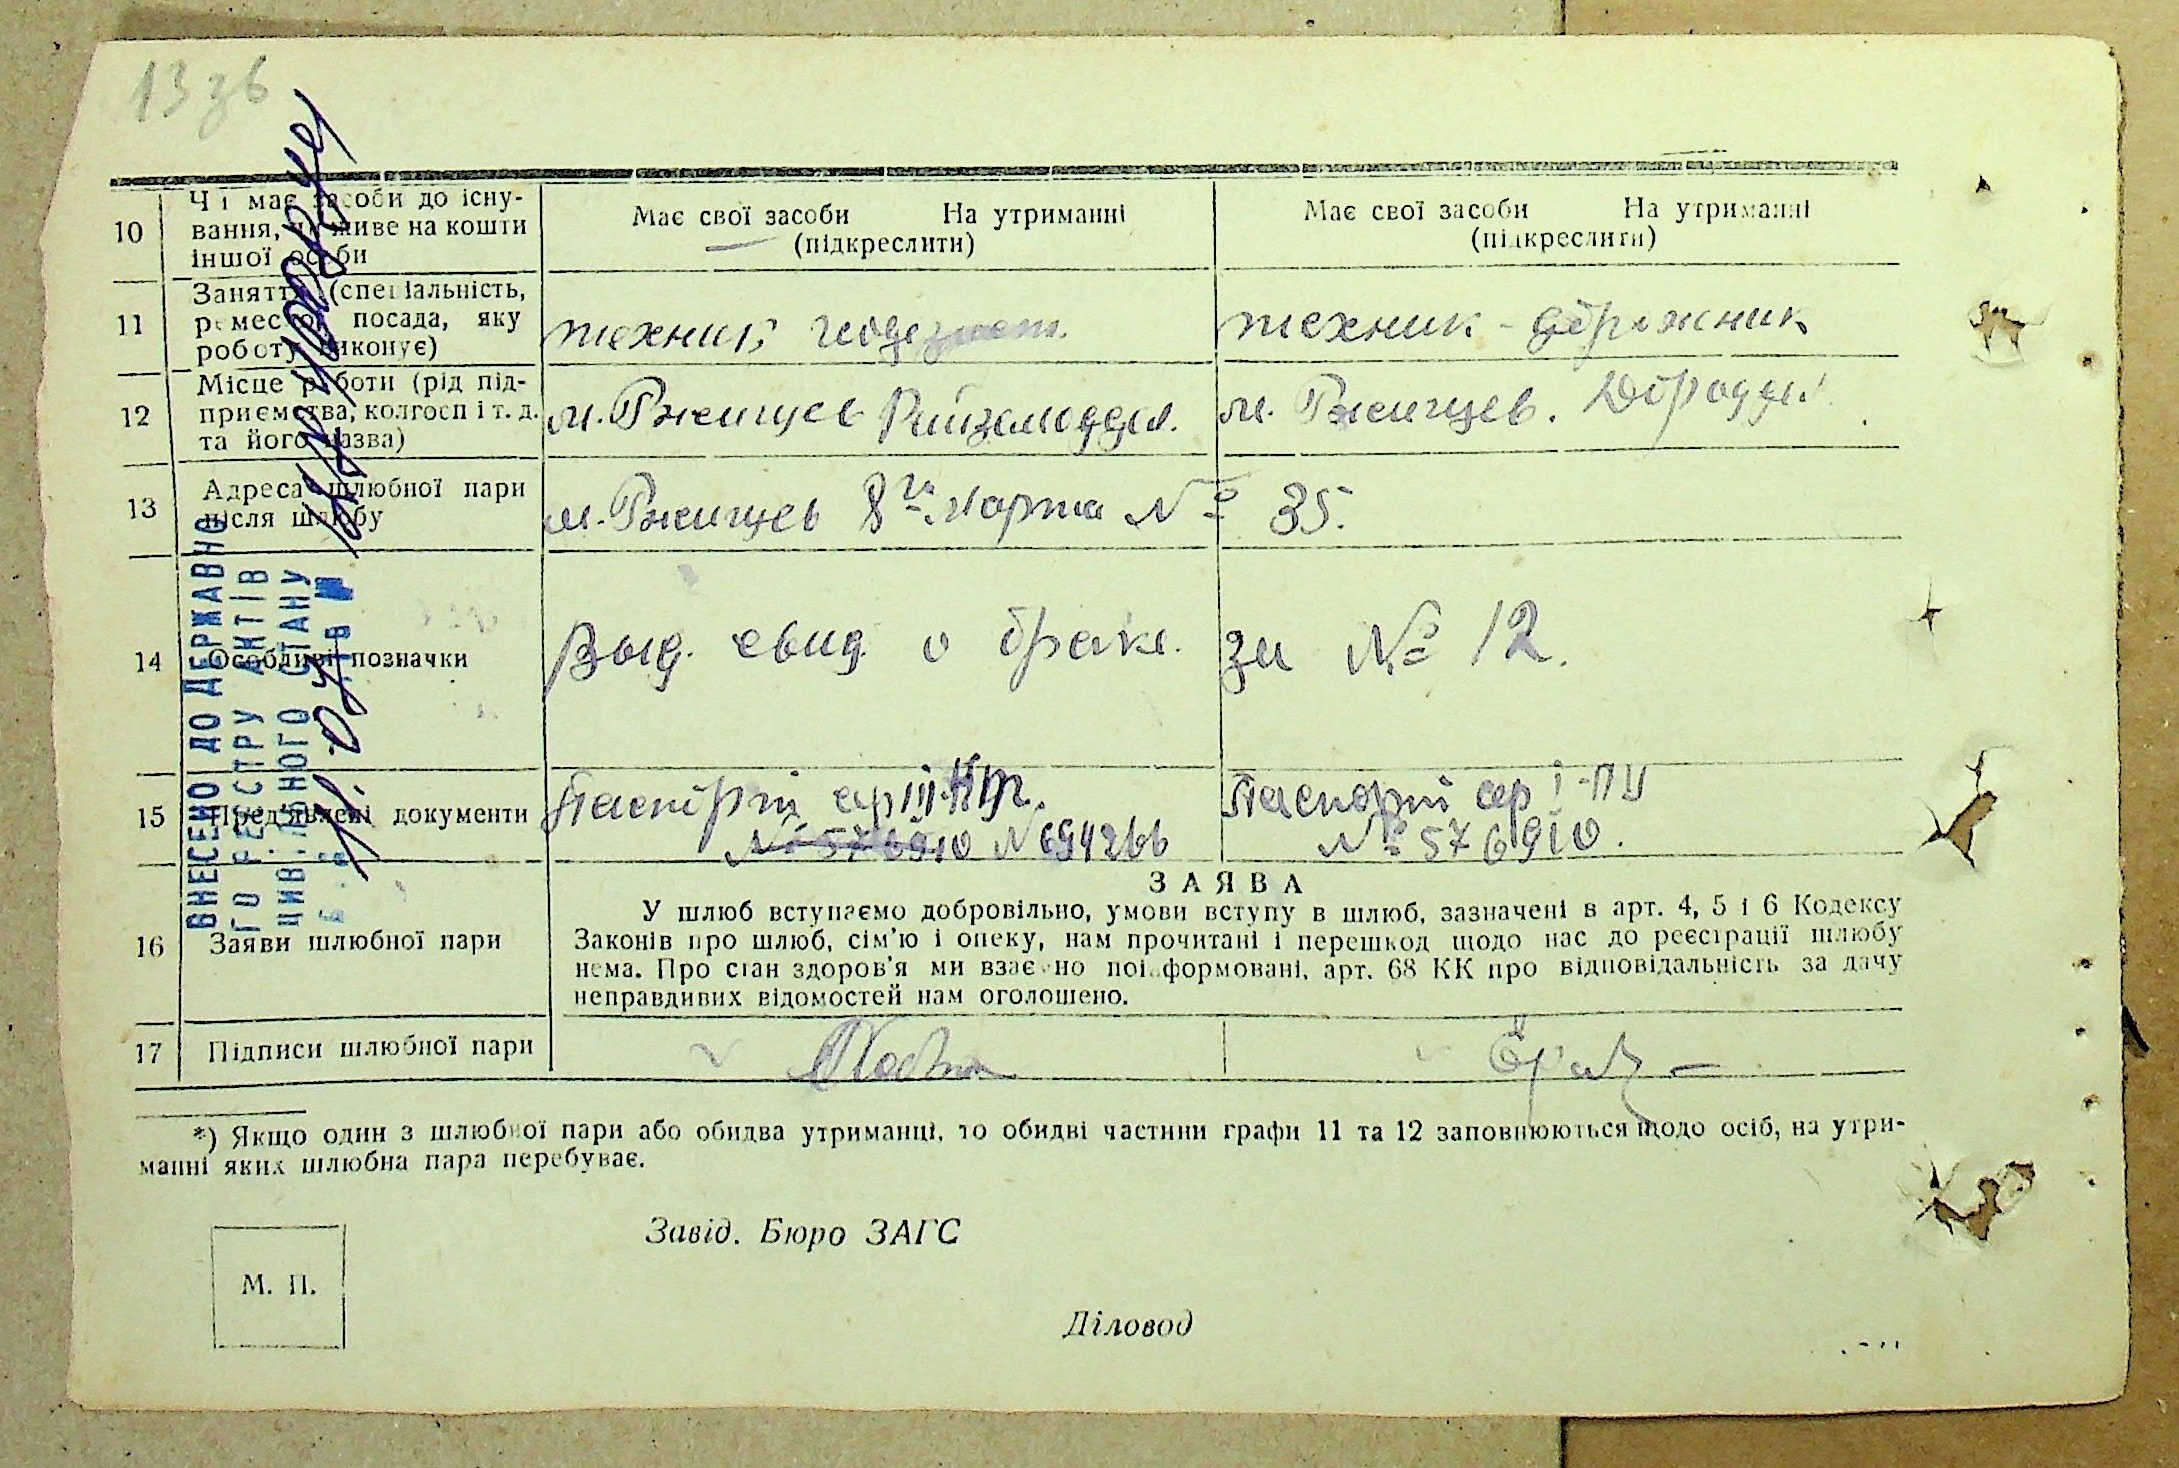 13 зв
10 Чи має засоби до існування, чи живе на кошти іншої особи
Має свої засоби На утриманні
(підкреслити)
Має свої засоби На утриманні
(підкреслити)
11 Заняття (спеціальність, ремесло, посада, яку роботу виконує)
техник геодезист.
техник - дорожник
12 Місце роботи (рід підприємства, колгосп і т. д. та його назва)
м. Ржищев Райземотдел.
м. Ржищев. Дороддел.
13 Адреса шлюбної пари після шлюбу
м. Ржищев 8го марта № 35.
14 Особливі позначки
Выд. свид. о браке. за № 12.
15 Пред'явлені документи
Паспорт сер III
№ 576910 № 694266
Паспорт сер I-ПУ
№ 576910.
16 Заяви шлюбної пари
ЗАЯВА
У шлюб вступаємо добровільно, умови вступу в шлюб, зазначені в арт. 4, 5 і 6 Кодексу
Законів про шлюб, сім'ю і опеку, нам прочитані і перешкод щодо нас до реєстрації шлюбу
нема. Про стан здоров'я ми взаємно поінформовані, арт. 68 КК про відповідальність за дачу
неправдивих відомостей нам оголошено.
17 Підписи шлюбної пари
*) Якщо один з шлюбної пари або обидва утриманці, то обидві частини графи 11 та 12 заповнюються щодо осіб, на утри-
манні яких шлюбна пара перебуває.
Завід. Бюро ЗАГС
М. П.
Діловод
ВНЕСЕНО ДО ДЕРЖАВНО
ГО РЕЄСТРУ АКТІВ
ЦИВІЛЬНОГО СТАНУ